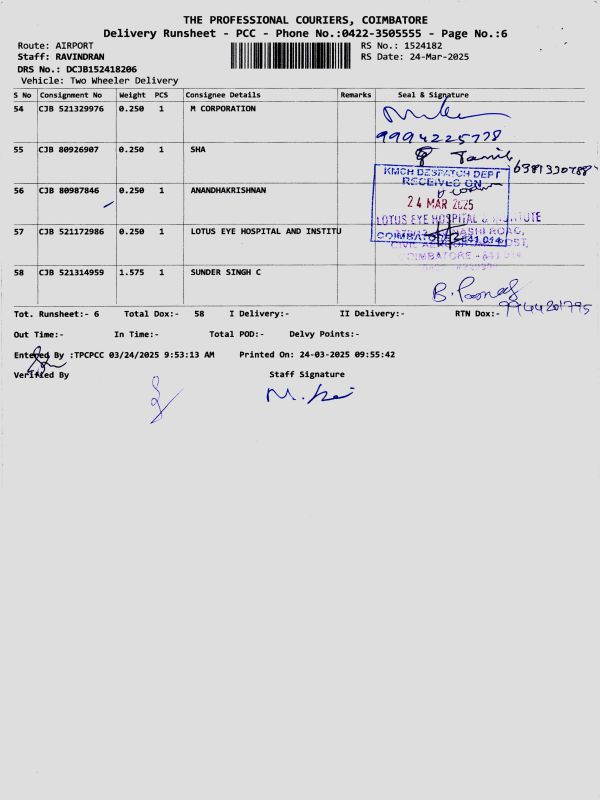 THE PROFESSIONAL COURIERS, COIMBATORE
Delivery Runsheet - PCC - Phone No.:0422-3505555 - Page No.:6
Route: AIRPORT
RS No.: 1524182
Staff: RAVINDRAN
RS Date: 24-Mar-2025
DRS No.: DCJB152418206
Vehicle: Two Wheeler Delivery
S No Consignment No Weight PCS Consignee Details Remarks Seal & Signature
54 CJB 521329976 0.250 1 M CORPORATION
9994225778
55 CJB 80926907 0.250 1 SHA
Tamil 6381330788
KMCH DESPATCH DEPT
RECEIVED ON
56 CJB 80987846 0.250 1 ANANDHAKRISHNAN
24 MAR 2025
LOTUS EYE HOSPITAL & INSTITUTE
57 CJB 521172986 0.250 1 LOTUS EYE HOSPITAL AND INSTITU
COIMBATORE - 641 014
COIMBATORE - 641 014
58 CJB 521314959 1.575 1 SUNDER SINGH C
9944201795
Tot. Runsheet:- 6 Total Dox:- 58 I Delivery:- II Delivery:- RTN Dox:-
Out Time:- In Time:- Total POD:- Delvy Points:-
Entered By :TPCPCC 03/24/2025 9:53:13 AM Printed On: 24-03-2025 09:55:42
Verified By Staff Signature